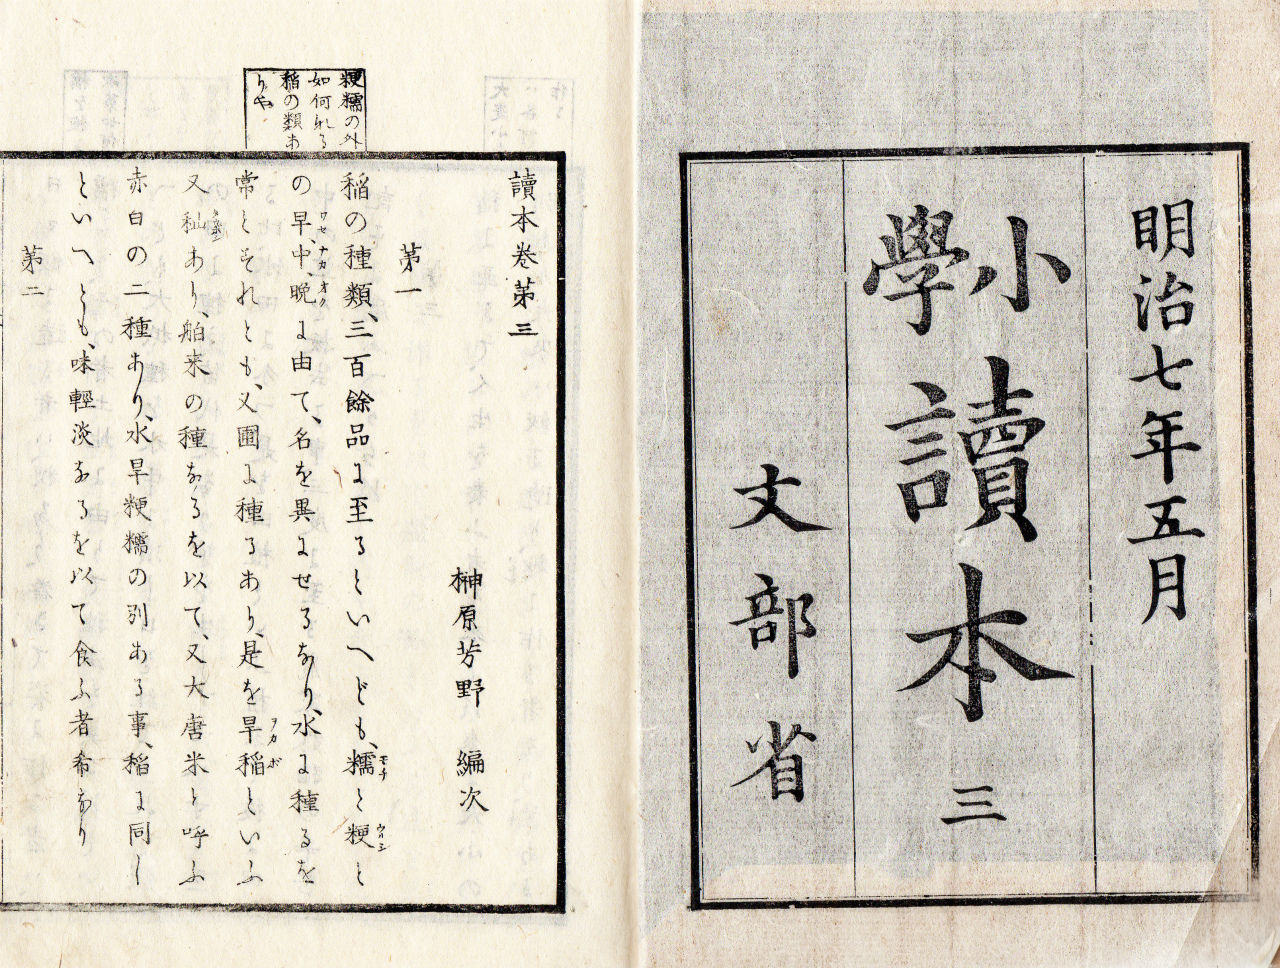 明治七年五月
小學讀本 三
文部省
粳糯の外
如何なる
稲の類あ
りや
讀本巻第三
榊原芳野 編次
第一
稲の種類、三百餘品に至るといへども、糯モチと粳ウルシと
の早ワセ、中ナカ、晩オクに由て、名を異にせるなり、水に種るを
常とすれとも、又圃に種るあり、是を旱稲ヲカボといふ
又秈あり、舶来の種なるを以て、又大唐米と呼ふ
赤白の二種あり、水旱粳糯の別ある事、稲に同し
といへとも、味輕淡なるを以て食ふ者希なり
第二